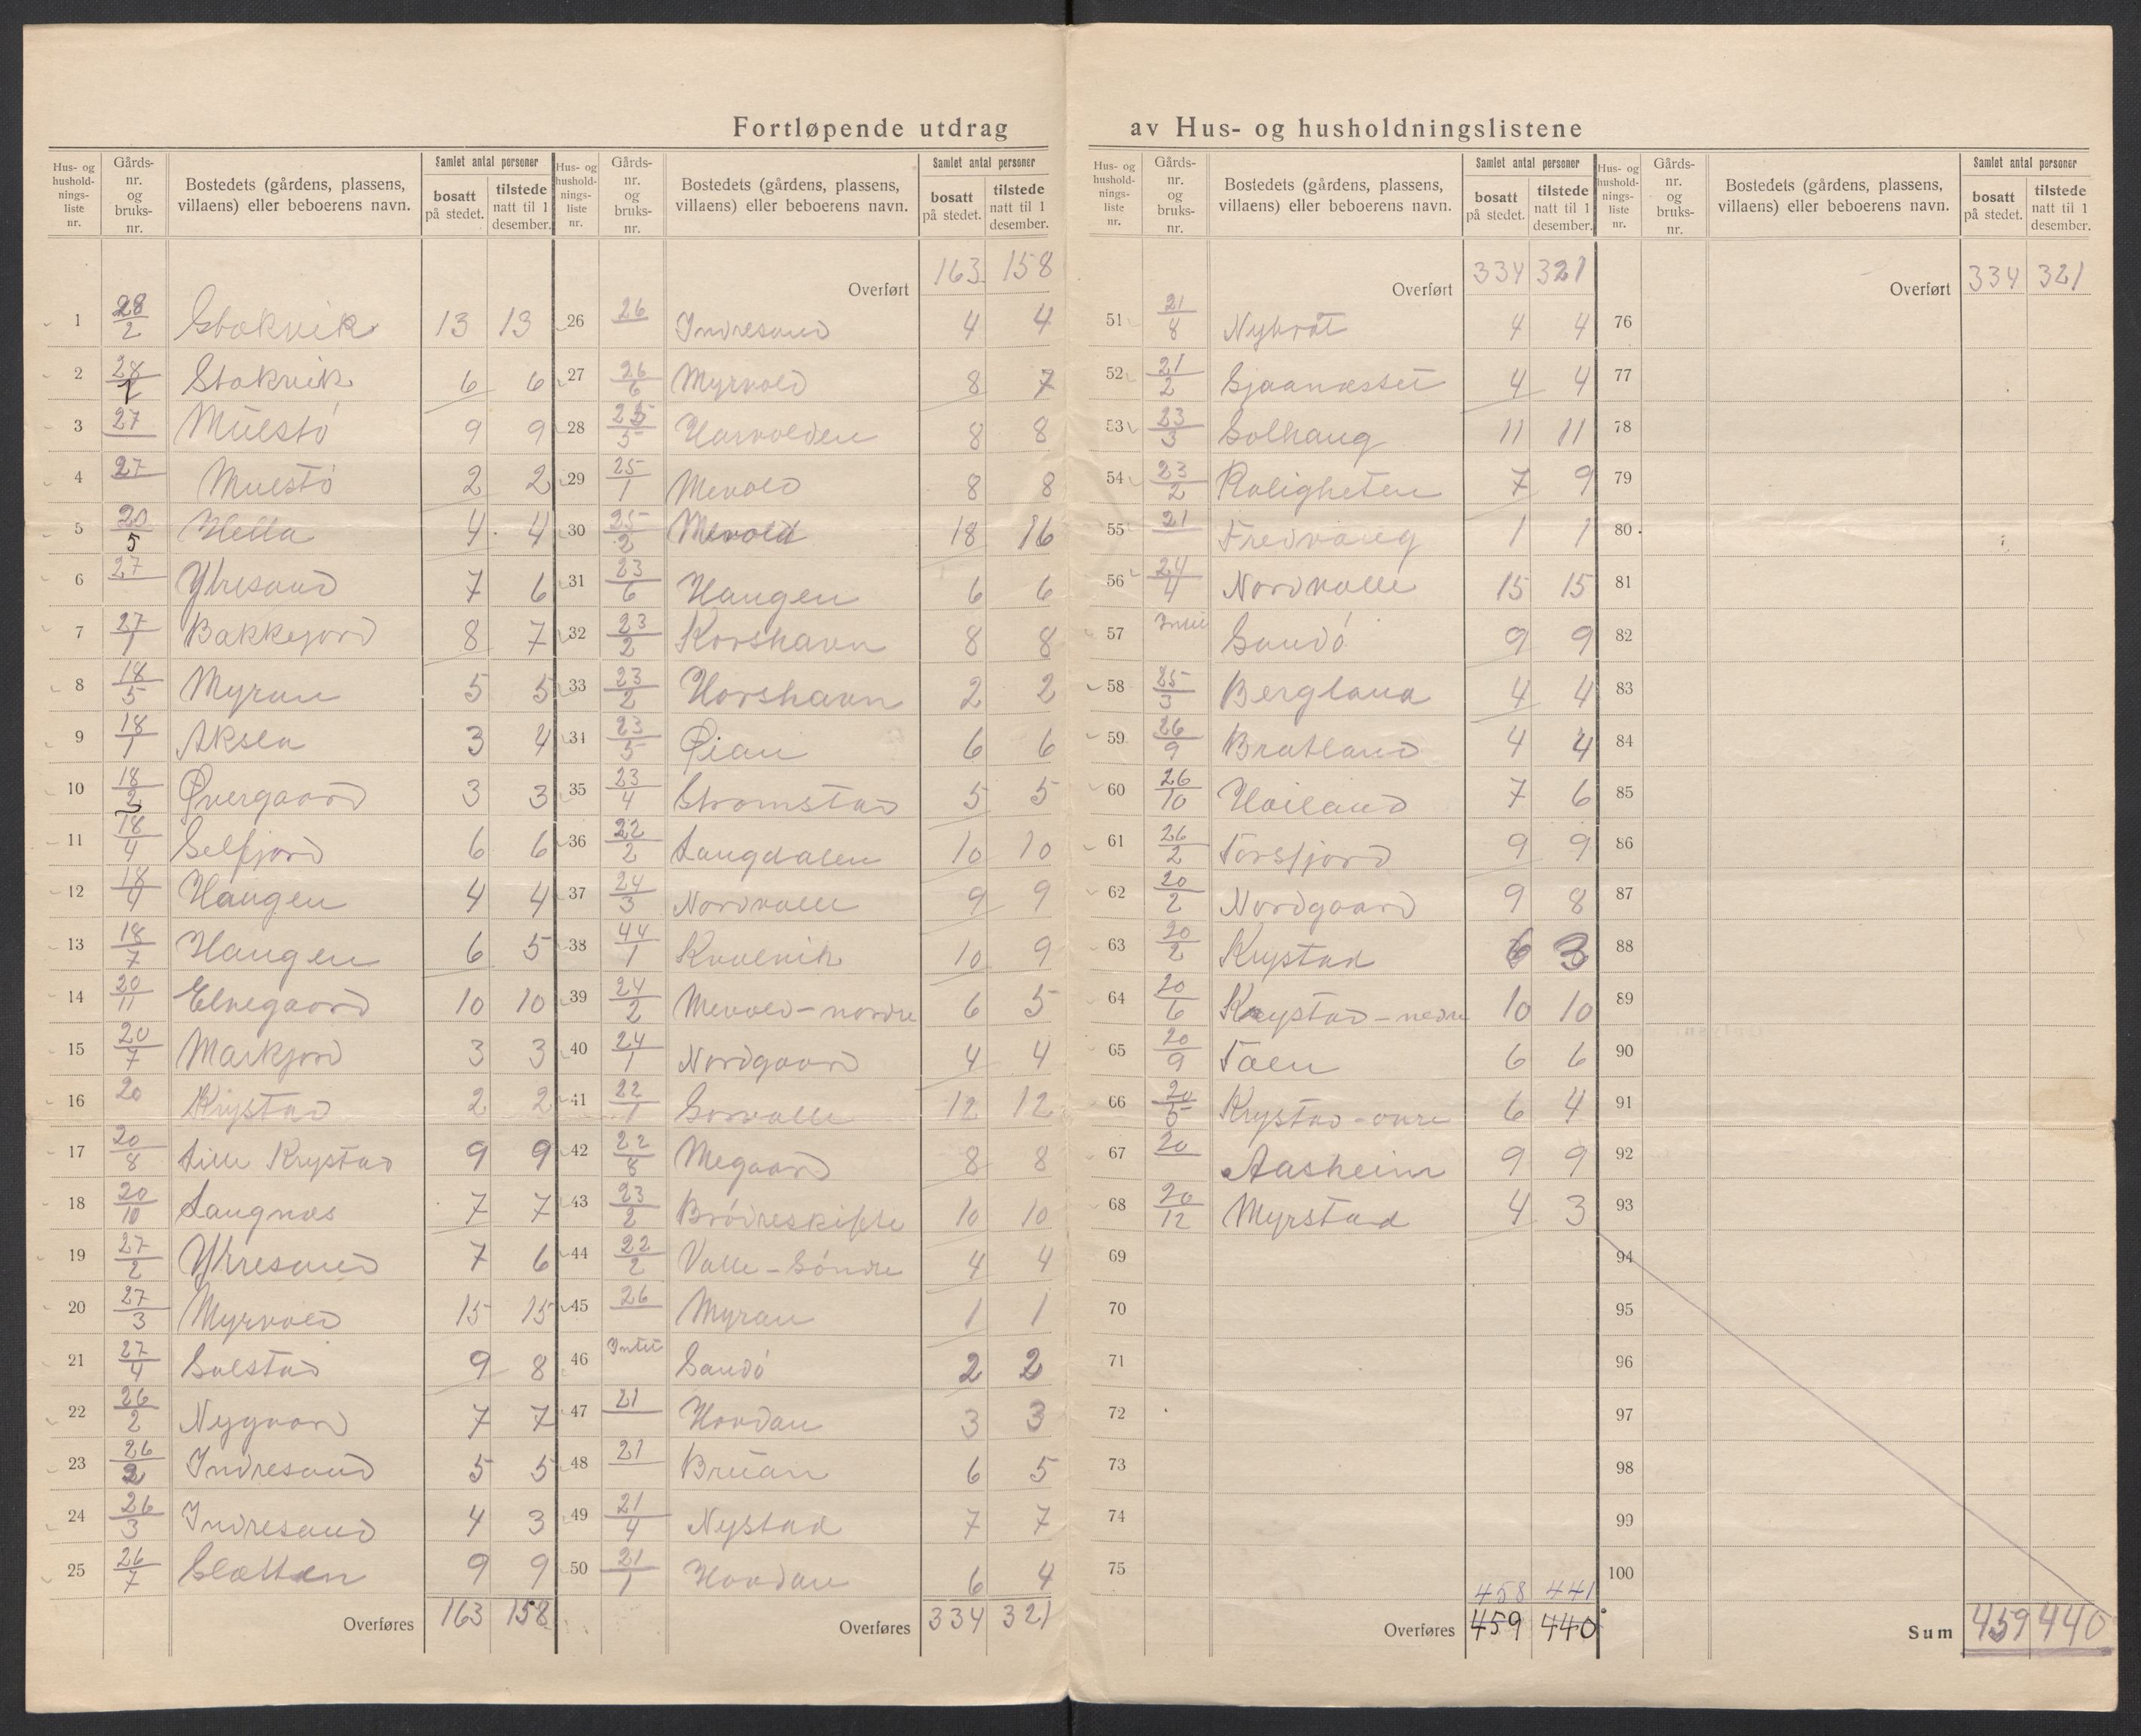 Fortløpende utdrag av Hus- og husholdningslistene
Hus- og husholdnings-liste nr. | Gårds-nr. og bruks-nr. | Bostedets (gårdens, plassens, villaens) eller beboerens navn. | Samlet antal personer | bosatt på stedet. | tilstede natt til 1 desember.
1 28/2 Stokvik 13 13
2 28/1 Stokvik 6 6
3 27 Mulstö 9 9
4 27 Mulstö 2 2
5 20/5 Hella 4 4
6 27 Ytresand 7 6
7 27/1 Bakkejord 8 7
8 18/5 Myran 5 5
9 18/1 Aksla 3 4
10 18/2 Øvergaard 3 3
11 18/4 Selfjord 6 6
12 18/4 Haugen 4 4
13 18/7 Haugen 6 5
14 20/11 Elvegaard 10 10
15 20/7 Markjord 3 3
16 20 Krystad 2 2
17 20/8 Lille Krystad 9 9
18 20/10 Langnæs 7 7
19 27/2 Ytresand 7 6
20 27/3 Myrvold 15 15
21 27/4 Solstad 9 8
22 26/2 Nygaard 7 7
23 26/2 Indresand 5 5
24 26/3 Indresand 4 3
25 26/7 Sletten 9 9
Overføres 163 158
Hus- og husholdnings-liste nr. | Gårds-nr. og bruks-nr. | Bostedets (gårdens, plassens, villaens) eller beboerens navn. | Samlet antal personer | bosatt på stedet. | tilstede natt til 1 desember.
Overført 163 158
26 26 Indresand 4 4
27 26/6 Myrvold 8 7
28 25/5 8 8
29 25/1 Mevold 8 8
30 25/2 Mevold 18 16
31 23/6 Haugen 6 6
32 23/2 Korshavn 8 8
33 23/2 Horshavn 2 2
34 23/5 Øian 6 6
35 23/4 Strømstad 5 5
36 22/2 Langdalen 10 10
37 24/3 Nordvalle 9 9
38 44/1 Kvalvik 10 9
39 24/2 Mevold-nordre 6 5
40 24/1 Nordgaard 4 4
41 22/1 Sørvalle 12 12
42 22/8 Megaard 8 8
43 23/2 Brödreskifte 10 10
44 22/2 Valle-Söndre 4 4
45 26 Myran 1 1
46 Intet Sandö 2 2
47 21 Hovdan 3 3
48 21 Brüan 6 5
49 21/4 Nystad 7 7
50 21/1 Hovdan 6 4
Overføres 334 321
Hus- og husholdnings-liste nr. | Gårds-nr. og bruks-nr. | Bostedets (gårdens, plassens, villaens) eller beboerens navn. | Samlet antal personer | bosatt på stedet. | tilstede natt til 1 desember.
Overført 334 321
51 21/8 Nybrøt 4 4
52 21/2 Sjaanæsset 4 4
53 23/3 Solhaug 11 11
54 23/2 Roligheten 7 9
55 21 Fredvang 1 1
56 24/4 Nordvalle 15 15
57 Sandö 9 9
58 25/3 Bergland 4 4
59 26/9 Bratland 4 4
60 26/10 Høiland 7 6
61 26/2 Torsfjord 9 9
62 20/2 Nordgaard 9 8
63 20/2 Krystad 6 3
64 20/6 Krystad-nedre 10 10
65 20/9 Taen 6 6
66 20/5 Krystad-øvre 6 4
67 20 Aasheim 9 9
68 20/12 Myrstad 4 3
69
70
71
72
73
74
75
458 441
Overføres 459 440
Hus- og husholdnings-liste nr. | Gårds-nr. og bruks-nr. | Bostedets (gårdens, plassens, villaens) eller beboerens navn. | Samlet antal personer | bosatt på stedet. | tilstede natt til 1 desember.
Overført 334 321
76
77
78
79
80
81
82
83
84
85
86
87
88
89
90
91
92
93
94
95
96
97
98
99
100
Sum 459 440